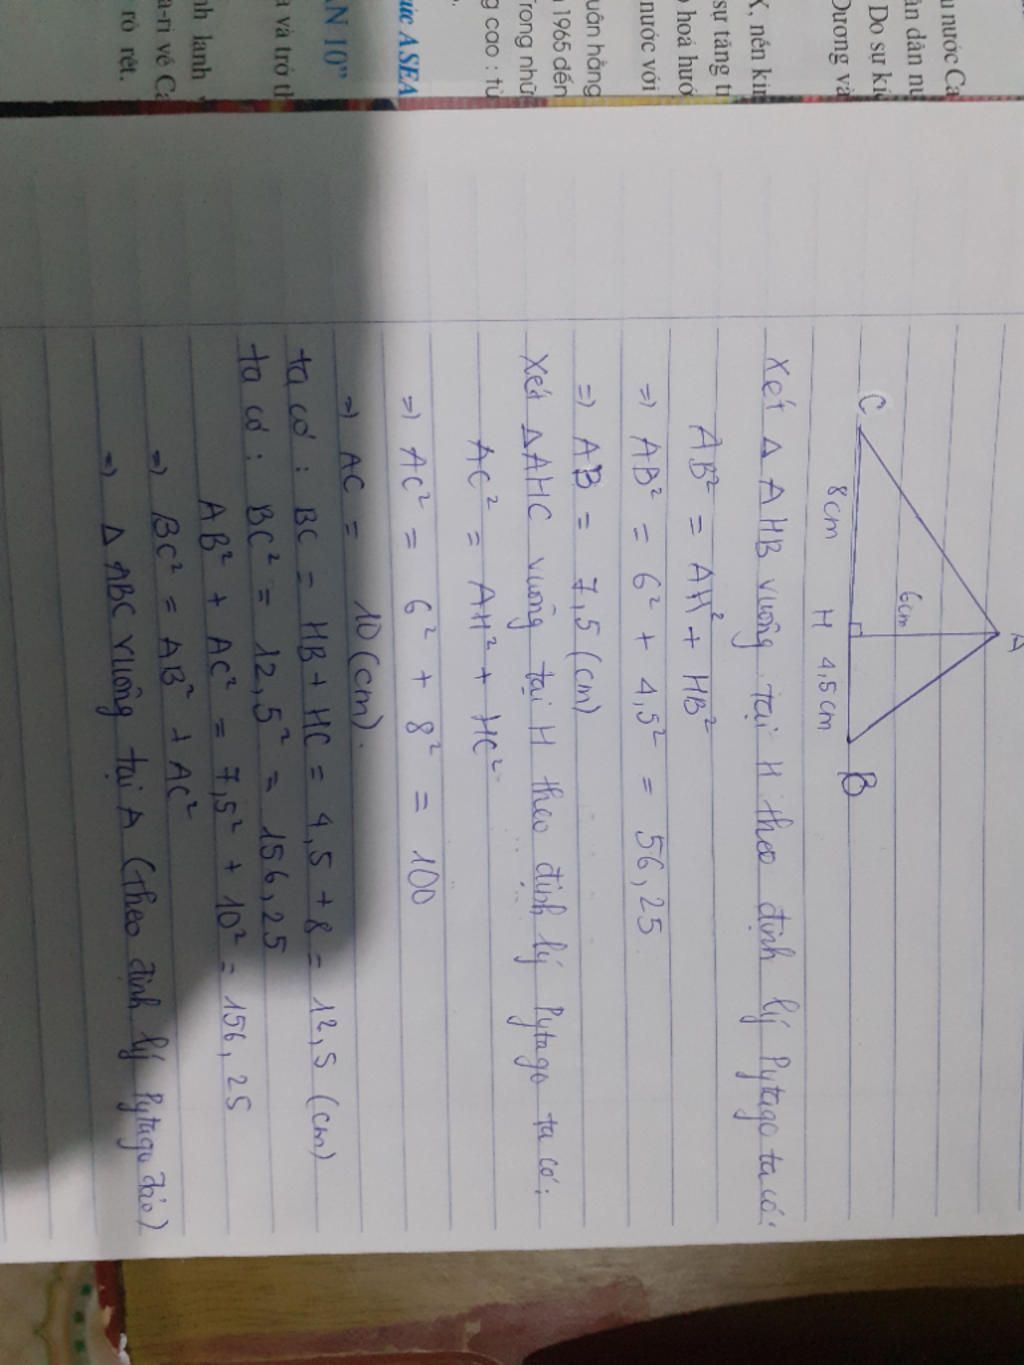 u nước Ca
ân dân nư
Do sự ki
Dương và
K, nền kin
sự tăng t
hoá hướ
nước với
uân hằng
1965 đến
Trong nhữ
g cao : từ
ức ASEA
AN 10"
và trở th
nh lanh
a-ri về Ca
rõ rệt.
A
6cm
C
8cm
H
4,5cm
B
Xét Δ AHB vuông tại H theo định lý Pytago ta có:
AB² = AH² + HB²
=) AB² = 6² + 4,5² = 56,25
=) AB = 7,5 (cm)
Xét Δ AHC vuông tại H theo định lý Pytago ta có:
AC² = AH² + HC²
=) AC² = 6² + 8² = 100
=) AC = 10 (cm).
ta có : BC = HB + HC = 4,5 + 8 = 12,5 (cm)
ta có : BC² = 12,5² = 156,25
AB² + AC² = 7,5² + 10² = 156,25
=) BC² = AB² + AC²
=) Δ ABC vuông tại A (theo định lý Pytago đảo)